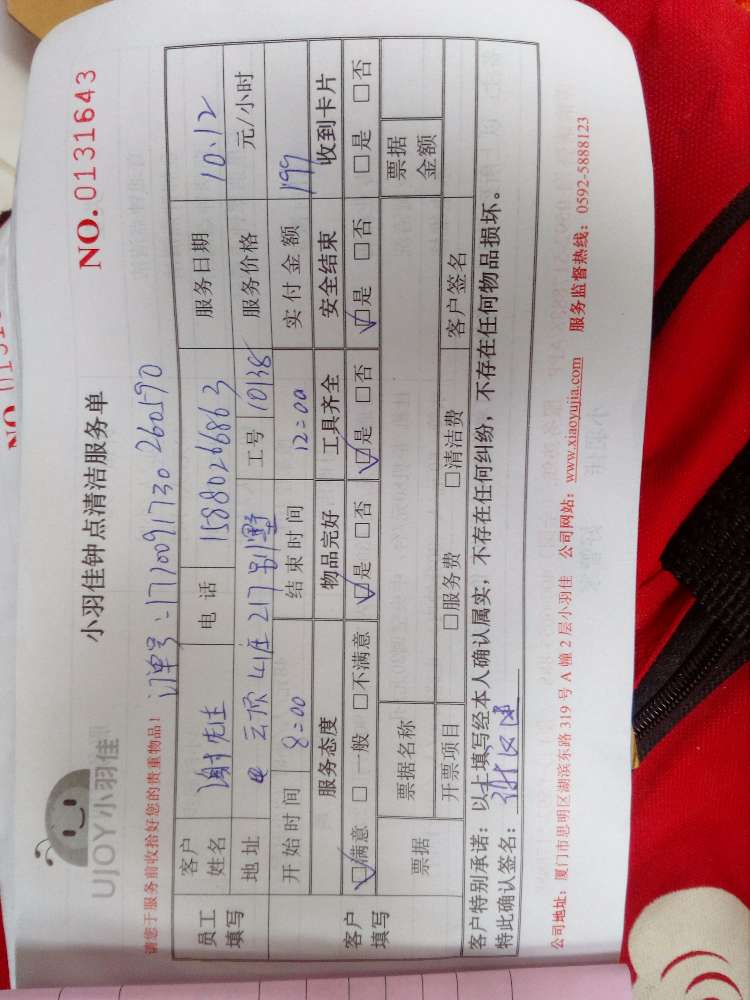 UJOY小羽佳
小羽佳钟点清洁服务单
NO.0131643
请您于服务前收拾好您的贵重物品！
订单号:171009173026015 90
员工填写
客户姓名 谢先生 电话 15880266863 服务日期 10.12
地址 云顶山庄217别墅 工号 10138 服务价格 元/小时
开始时间 8:00 结束时间 12:00 实付金额 199
客户填写
服务态度 物品完好 工具齐全 安全结束 收到卡片
☑满意 □一般 □不满意 ☑是 □否 ☑是 □否 ☑是 □否 □是 □否
票据 票据名称 票据金额
开票项目 □服务费 □清洁费 客户签名
客户特别承诺：以上填写经本人确认属实，不存在任何纠纷，不存在任何物品损坏。
特此确认签名：
公司地址：厦门市思明区湖滨东路 319 号 A 幢 2 层小羽佳 公司网站：www.xiaoyujia.com 服务监督热线：0592-5888123